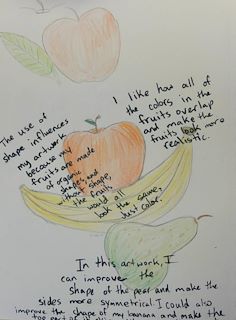 The use of
shape influences
my artwork
because my
fruits are made
of organic
shapes, and
without shape,
the fruits
would all
look the same,
just color.
I like how all of
the colors in the
fruits overlap
and make the
fruits look more
realistic.
In this artwork, I
can improve the
shape of the pear and make the
sides more symmetrical. I could also
improve the shape of my banana and make the